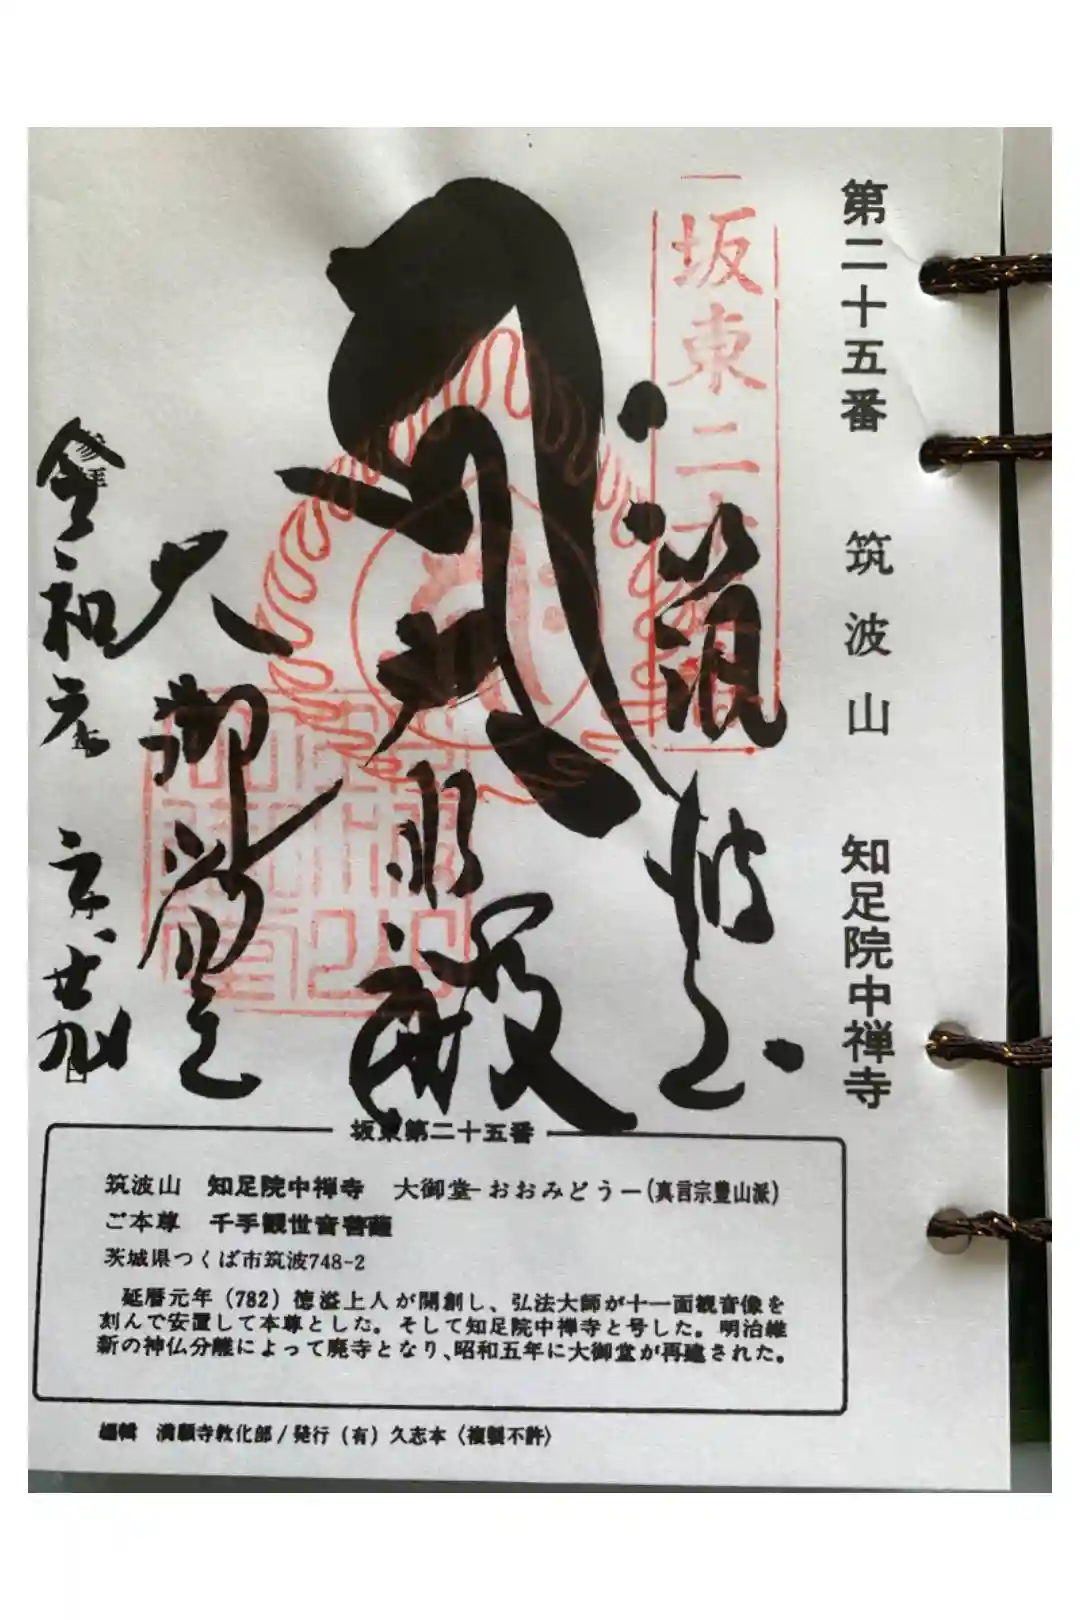 第二十五番 筑波山 知足院中禅寺
坂東二十
筑波山
大悲殿
大御堂
令和元
廿九日
坂東第二十五番
筑波山 知足院中禅寺 大御堂-おおみどうー(真言宗豊山派)
ご本尊 千手観世音菩薩
茨城県つくば市筑波748-2
延暦元年(782)徳溢上人が開創し、弘法大師が十一面観音像を
刻んで安置して本尊とした。そして知足院中禅寺と号した。明治維
新の神仏分離によって廃寺となり、昭和五年に大御堂が再建された。
編輯 満願寺教化部/発行(有)久志本〈複製不許〉